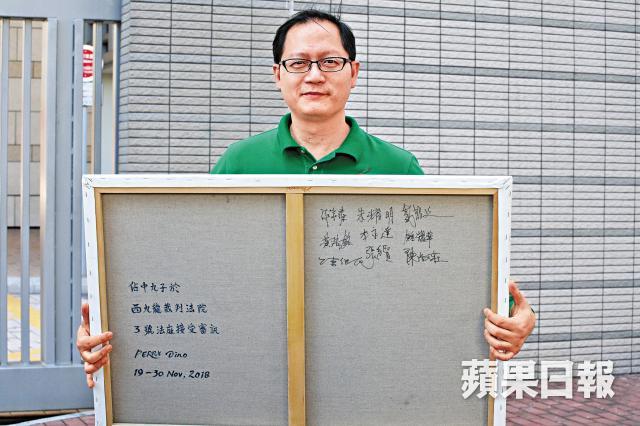 邵家臻 朱耀明
黃浩銘 李永達 鍾耀華
佔中九子於
西九龍裁判法院
3號法庭接受審訊
PERRY Dino
19-30 Nov, 2018
蘋果日報